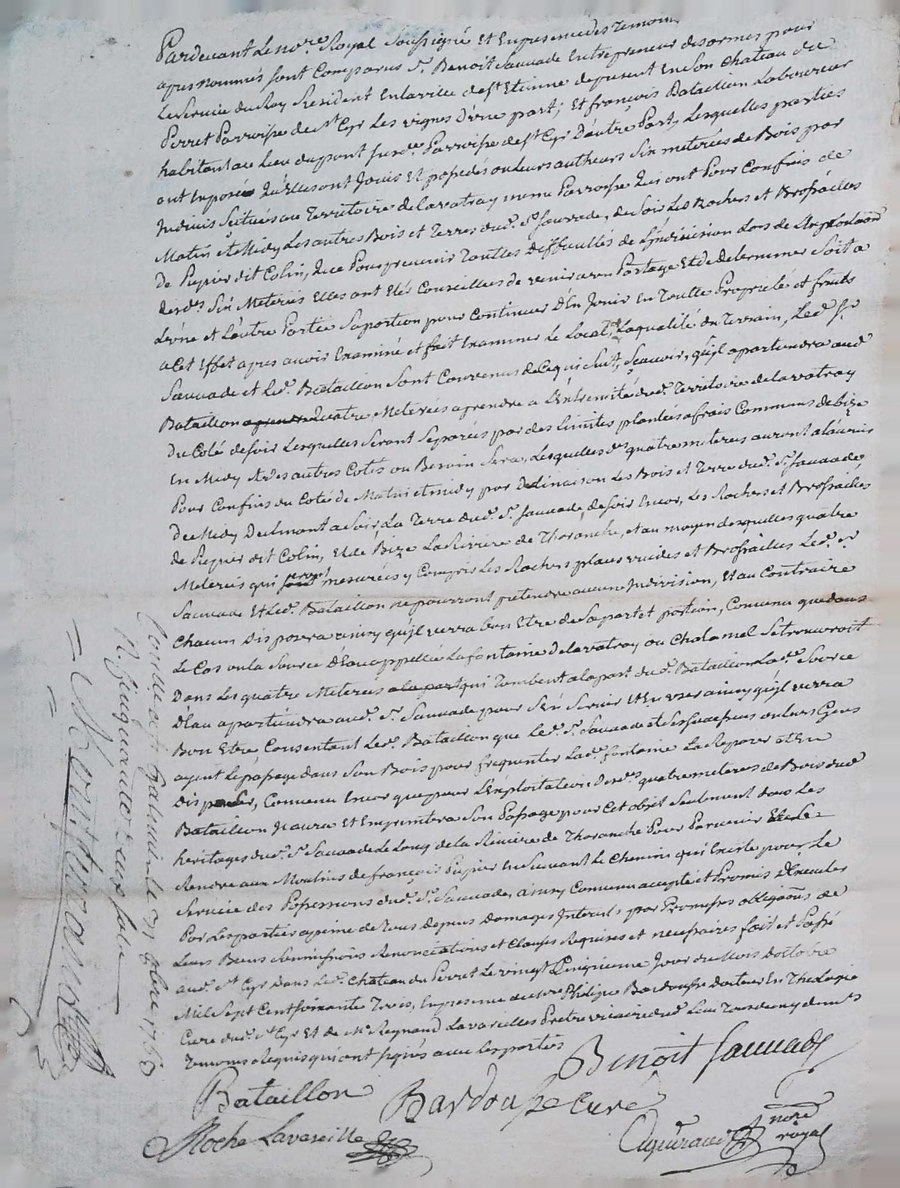 Pardevant Le nore. Royal Soussigné Et En presence des Temoins
apres nommés sont Comparus Sr. Benoit Sauvade Entrepreneur des armes pour
Le Service du Roy Resident En la ville de St. Etienne de present En Son Chateau du
Perret Parroisse de St. Cyr Les vignes D'une part; Et francois Bataillon Laboureur
habitant au Lieu du pont Parroisse de St. Cyr D'autre Part, Lesquelles parties
ont Exposé qu'Elles ont Jouis Et possedés ou Leurs autheurs Six meterés de Bois par
Indivis Scitués au Territoire de Lavatray meme Parroisse qui ont Pour Confins de
Matin et Midy Les autres Bois et Terres dud. Sr. Sauvade, de soir Les Rochers et Brossailles
de Papier dit Colin, Que Pour prevenir Touttes Difficultés de L'indivision Lors de L'Exploitation
desds. Six Meterés Elles ont Etés Conseillées de venir a un Partage Et de determiner Soit a
L'une et L'autre Partie Sa portion pour Continuer D'En Jouir En Toutte Proprieté et fruits
a Cet Effet apres avoir Examiné et fait Examiner le Local, La qualité du Terrain, Led. Sr.
Sauvade et Led. Bataillon Sont Convenus de Ce qui Suit, Scavoir, qu'il apartiendra aud.
Bataillon quatre Meterés a prendre a L'Extremité dud. Territoire de Lavatray
Du Coté de soir Lesquelles Seront Separées par des Limites plantées a frais Communs de bize
En Midy Et des autres Cotés ou Besoin Sera, Lesquelles des. quatre meterés auront a L'avenir
Pour Confins du Cotés de Matin et midy par Declinaison Les Bois et Terre dud. Sr. Sauvade
De Midy Declinant a Soir La Terre dud. Sr. Sauvade, de soir Encor, Les Rochers et Brossailles
de Papier dit Colin, Et de Bize La Riviere de Thoranche, et au moyen desquelles quatre
Meterés qui seront mesurées y Compris Les Rochers places vuides et Brossailles Led. Sr.
Sauvade Et Led. Bataillon ne pourront pretendre aucune Indivision, Et au Contraire
Chacun Disposera ainsy qu'il verra bon Etre de Sa part et portion, Convenu que dans
Le Cas ou la Source D'Eau appellée La fontaine de Lavatray ou Chalamel Se trouveroit
Dans Les quatre Meterés qui Tombent a la part dud. Bataillon Lad. Source
D'Eau apartiendra aud. Sr. Sauvade pour S'En Servir et En user ainsy qu'il verra
Bon Etre Consentant Led. Bataillon que Led. Sr. Sauvade et ses ou Leurs Gens
ayent Le passage dans Son Bois pour frequenter Lad. fontaine La Reparer et En
Disposer, Convenu Encor que pour L'Exploitation desds. quatre meterés de Bois dud.
Bataillon Il aura Et Empruntera Son Passage pour Cet objet Seulement dans Les
heritages dud. Sr. Sauvade Le Long de La Riviere de Thoranche Pour Parvenir Et Se
Rendre aux Moulins de francois Papier En Suivant Le Chemin qui Existe pour Le
Service des Possessions dud. Sr. Sauvade, ainsy Convenu accepté et Promis D'Executer
Par Les parties a peine de Tous Depens domages Interets, par Promesses obligaons. de
Leurs Biens Soumissions Renonciations et Clauses Requises et necessaires fait et Passé
aud. St. Cyr Dans Led. Chateau du Perret Le vingt Cinquieme Jour du Mois d'octobre
Mil Sept Cent Soixante Trois, En presence de Philippe Bardousse docteur En Theologie
Curé dud. St. Cyr Et de Mr. Reynaud Lavareilles Pretre vicaire dud. Lieu
Temoins Requis qui ont signés avec Les parties
Benoit Sauvade
Bataillon
Bardousse Curé
Roche Lavareille
nore.
royal